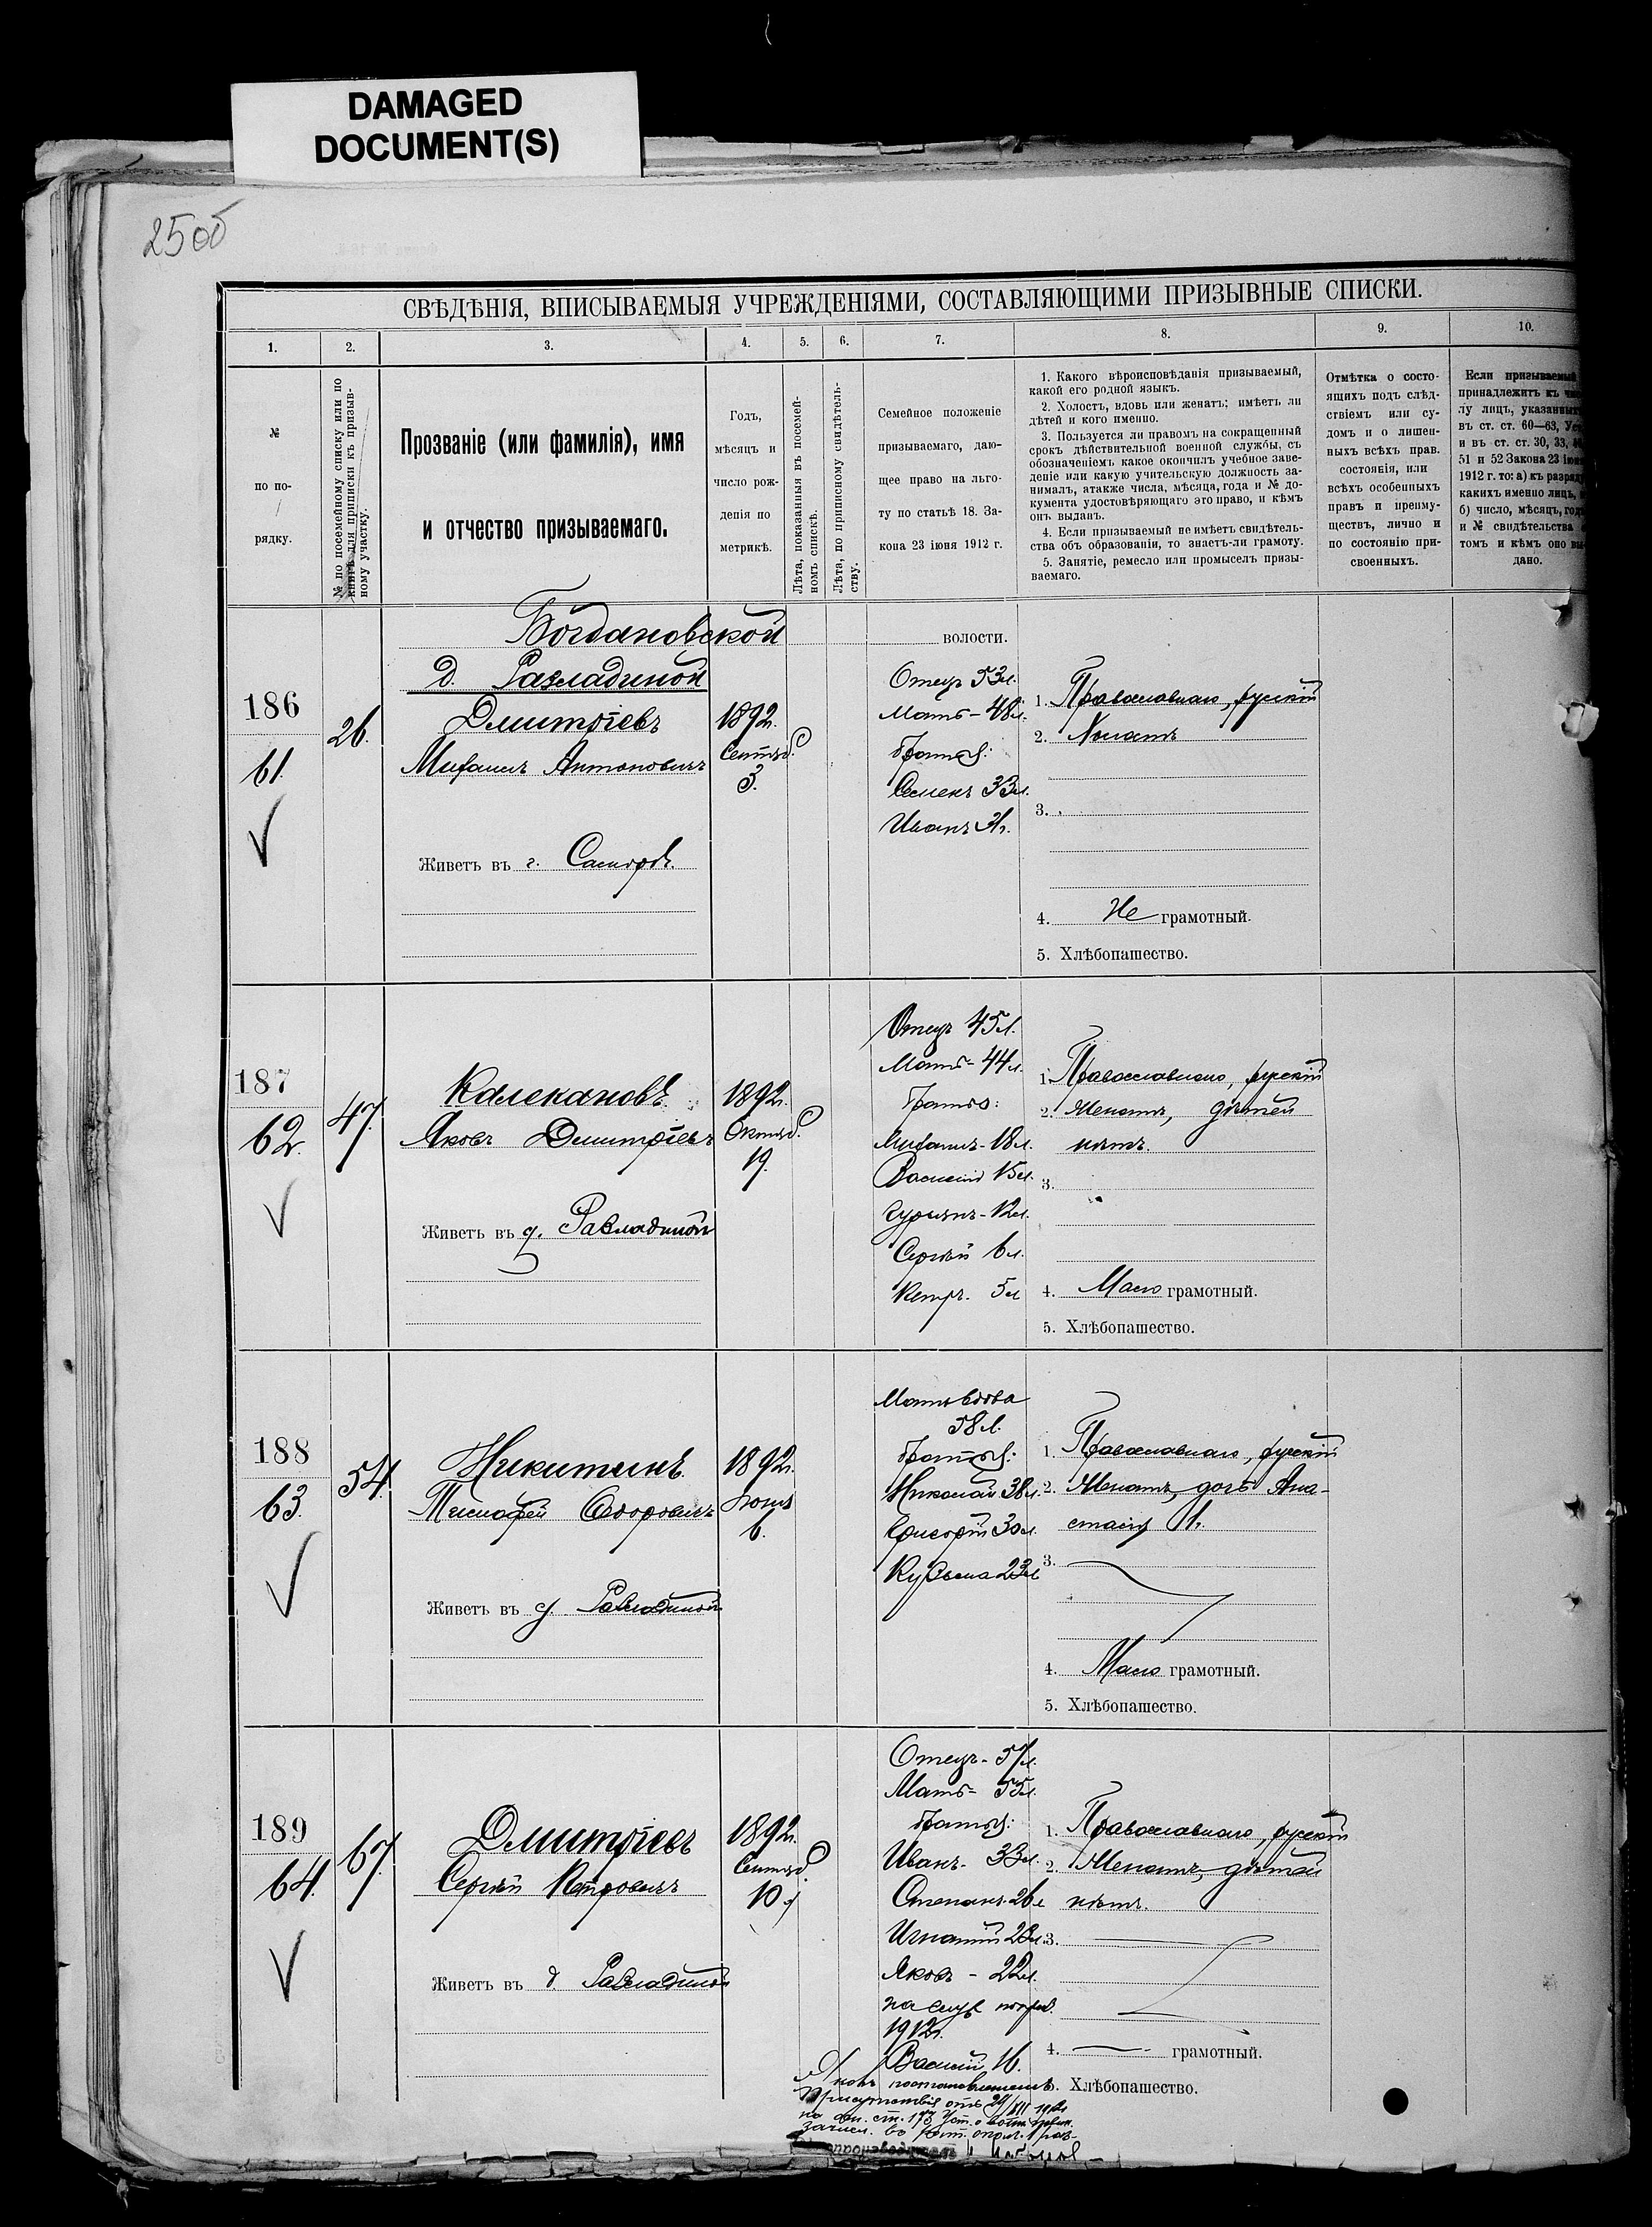 DAMAGED
DOCUMENT(S)
25об
СВѢДѢНІЯ, ВПИСЫВАЕМЫЯ УЧРЕЖДЕНІЯМИ, СОСТАВЛЯЮЩИМИ ПРИЗЫВНЫЕ СПИСКИ.
1. 2. 3. 4. 5. 6. 7. 8. 9. 10.
№
по по-
рядку.
№ по посемейному списку или по
книгѣ для приписки къ призыв-
ному участку.
Прозваніе (или фамилія), имя
и отчество призываемаго.
Годъ,
мѣсяцъ и
число рож-
денія по
метрикѣ.
Лѣта, показанныя въ посемей-
номъ спискѣ.
Лѣта, по приписному свидѣтель-
ству.
Семейное положеніе
призываемаго, даю-
щее право на льго-
ту по статьѣ 18. За-
кона 23 іюня 1912 г.
1. Какого вѣроисповѣданія призываемый,
какой его родной языкъ.
2. Холостъ, вдовъ или женатъ; имѣетъ ли
дѣтей и кого именно.
3. Пользуется ли правомъ на сокращенный
срокъ дѣйствительной военной службы, съ
обозначеніемъ какое окончилъ учебное заве-
деніе или какую учительскую должность за-
нималъ, атакже числа, мѣсяца, года и № до-
кумента удостовѣряющаго это право, и кѣмъ
онъ выданъ.
4. Если призываемый не имѣетъ свидѣтель-
ства объ образованіи, то знаетъ-ли грамоту.
5. Занятіе, ремесло или промыселъ призы-
ваемаго.
Отмѣтка о состо-
ящихъ подъ слѣд-
ствіемъ или су-
домъ и о лишен-
ныхъ всѣхъ прав.
состоянія, или
всѣхъ особенныхъ
правъ и преиму-
ществъ, лично и
по состоянію при-
своенныхъ.
Если призываемый
принадлежитъ къ чис
лу лицъ, указанных
въ ст. ст. 60—63, Уст
и въ ст. ст. 30, 33,
51 и 52 Закона 23 іюня
1912 г. то: а) къ разряду
какихъ именно лицъ,
б) число, мѣсяц, год
и № свидѣтельства
томъ и кѣмъ оно вы
дано.
Богдановской волости.
д. Разладиной
186
61.
26.
Дмитріевъ
Михаилъ Антоновичъ
Живетъ въ г. Самарѣ.
1892г.
Сентяб.
3.
Отецъ 53л.
Мать - 48л.
братья:
Семенъ 33л.
Иванъ
1. Православнаго, русскій
2. Холостъ
3.
4. Не грамотный.
5. Хлѣбопашество.
187
62.
47.
Калекановъ
Яковъ Дмитріевъ
Живетъ въ д. Разладиной
1892г.
Октяб.
19.
Отецъ 45л.
Мать - 44л.
братья:
Михаилъ - 18л.
Василій 15л.
Гурьянъ - 12л.
Сергѣй 6л.
Петръ. 5л
1. Православнаго, русскій
2. Женатъ, дѣтей
нѣтъ.
3.
4. Мало грамотный.
5. Хлѣбопашество.
188
63.
54.
Никитинъ
Тимофей Ѳедоровичъ
Живетъ въ д. Разладиной
1892г.
6.
Мать вдова
58л.
братья:
Николай 38л.
Григорій 30л.
Кузьма 23л
1. Православнаго, русскій
2. Женатъ, дочь Ана-
стасія 1г.
3.
4. Мало грамотный.
5. Хлѣбопашество.
189
64.
67.
Дмитріевъ
Сергѣй Петровичъ
Живетъ въ д Разладиной
1892г.
Сентяб.
10
Отецъ - 57л.
Мать - 55л.
братья:
Иванъ - 33л.
Степанъ - 26л
Игнатій
Яковъ - 22л.
на служ
1912г.
Василій 16.
1. Православнаго, русскій
2. Женатъ, дѣтей
нѣтъ.
3.
4. грамотный.
5. Хлѣбопашество.
Яковъ постановленіемъ
Присутствія отъ 29/XII 1912г